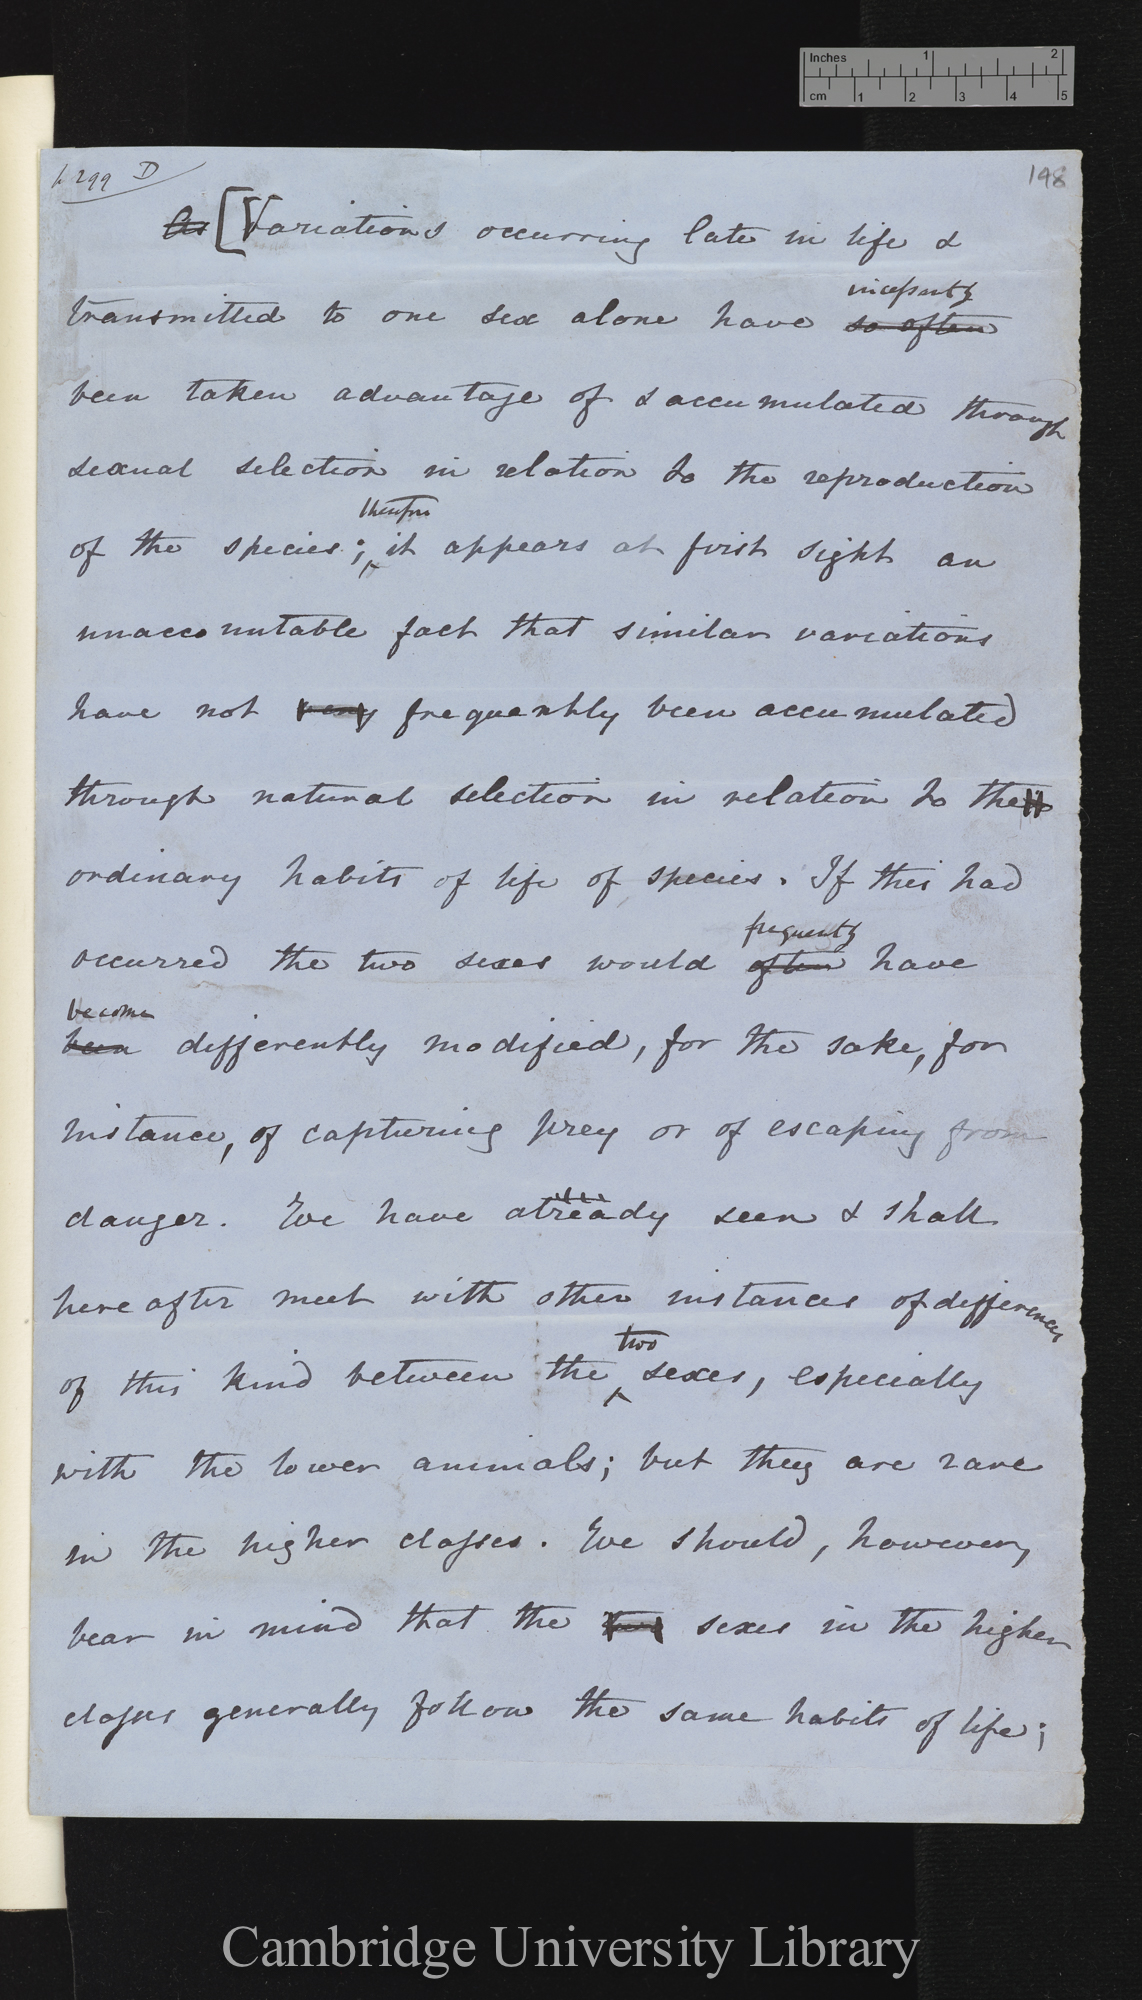 Inches 1 2
cm 1 2 3 4 5
p 299 D
148
As [Variations occurring late in life &
incessantly
transmitted to one sex alone have so often
been taken advantage of & accumulated through
sexual selection in relation to the reproduction
therefore
of the species; it appears at first sight an
unaccountable fact that similar variations
have not very frequently been accumulated
through natural selection in relation to the
ordinary habits of life of species. If this had
frequently
occurred the two sexes would often have
become
been differently modified, for the sake, for
instance, of capturing prey or of escaping from
danger. We have already seen & shall
hereafter meet with other instances of differences
two
of this kind between the sexes, especially
with the lower animals; but they are rare
in the higher classes. We should, however,
bear in mind that the two sexes in the higher
classes generally follow the same habits of life;
Cambridge University Library